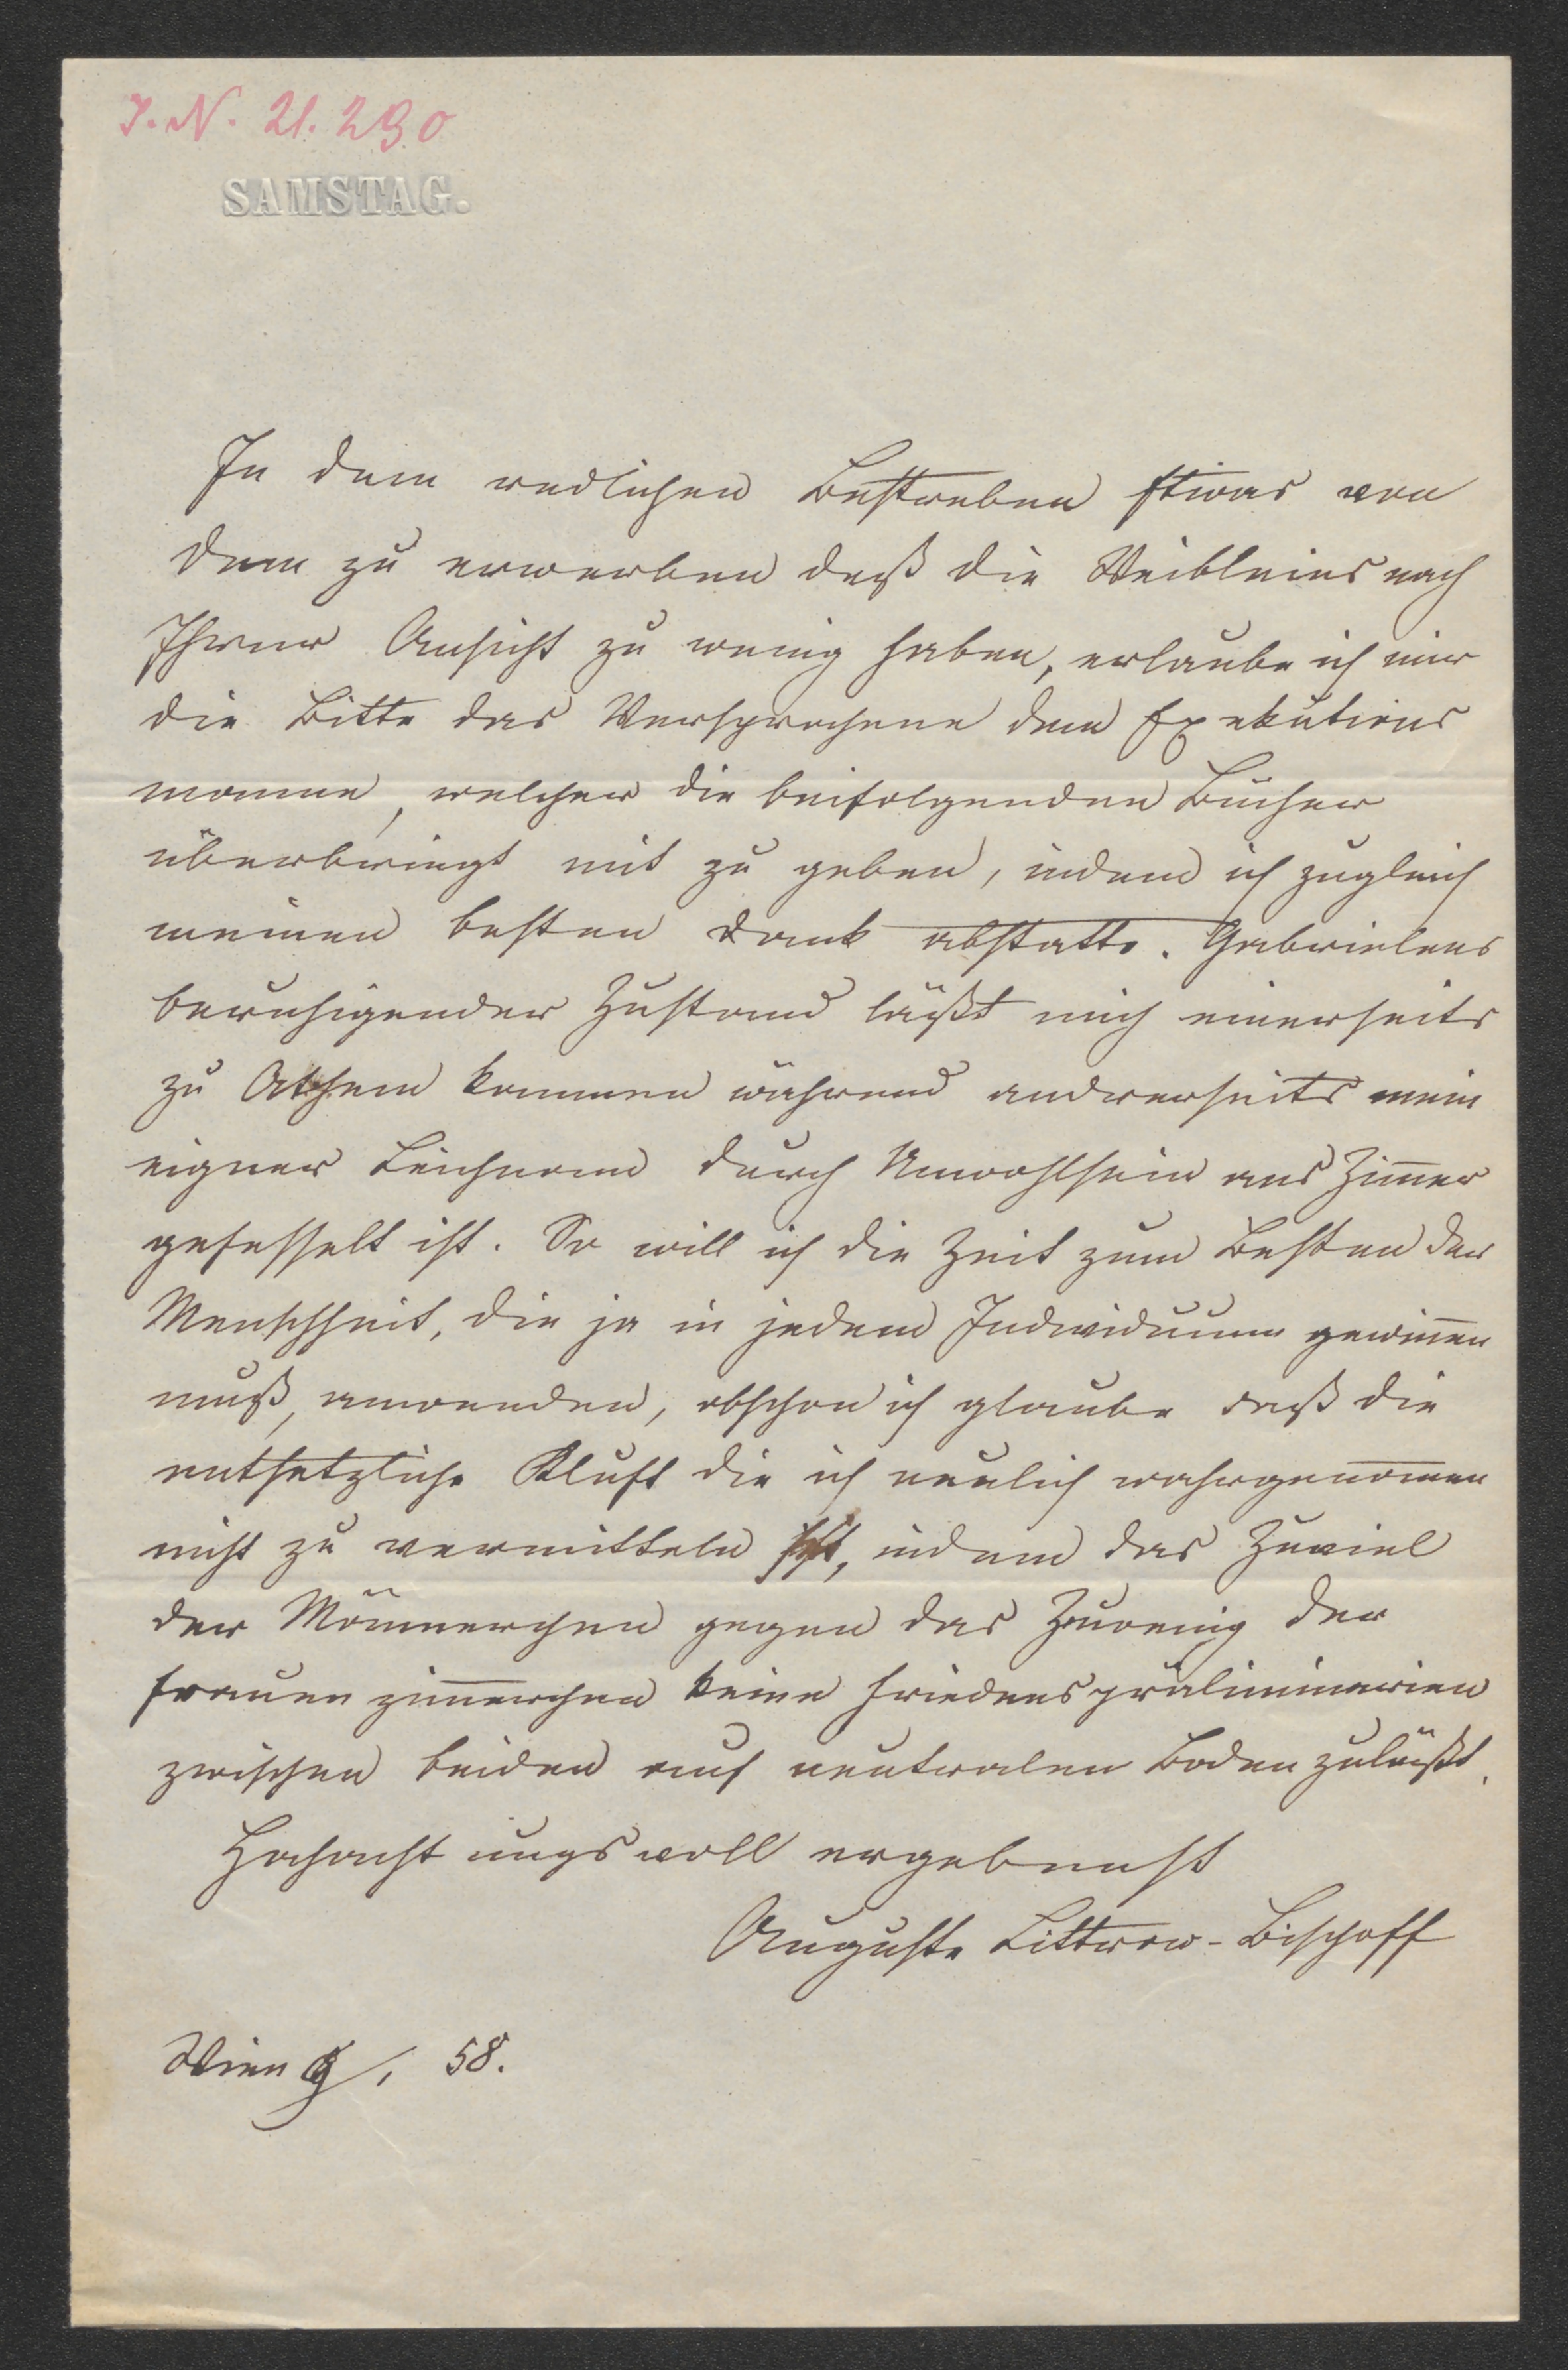 J. N. 21.290
SAMSTAG.
In dem redlichen Bestreben Etwas von
dem zu erwerben daß die Weibleins nach
Ihrer Ansicht zu wenig haben, erlaube ich mir
die Bitte das Versprochene dem Exekutions
manne, welcher die beifolgenden Bücher
überbringt mit zu geben, indem ich zugleich
meinen besten Dank abstatte. Gabrielens
beruhigender Zustand läßt mich einerseits
zu Athem kommen während andrerseits mein
eigner Leichnam durch Unwohlsein ans Zim̅er
gefesselt ist. So will ich die Zeit zum Besten der
Menschheit, die ja in jedem Individuum gewin̅en
muß, anwenden, obschon ich glaube daß die
entsetzliche Kluft die ich neulich wahrgenom̅en
nicht zu vermitteln ist, indem das Zuviel
der Männerchen gegen das Zuwenig der
Frauenzim̅erchen keine Friedenspräliminarien
zwischen beiden auf neutralen Boden zuläßt.
Hochachtungsvoll ergebenst
Auguste Littrow-Bischoff
Wien 58.